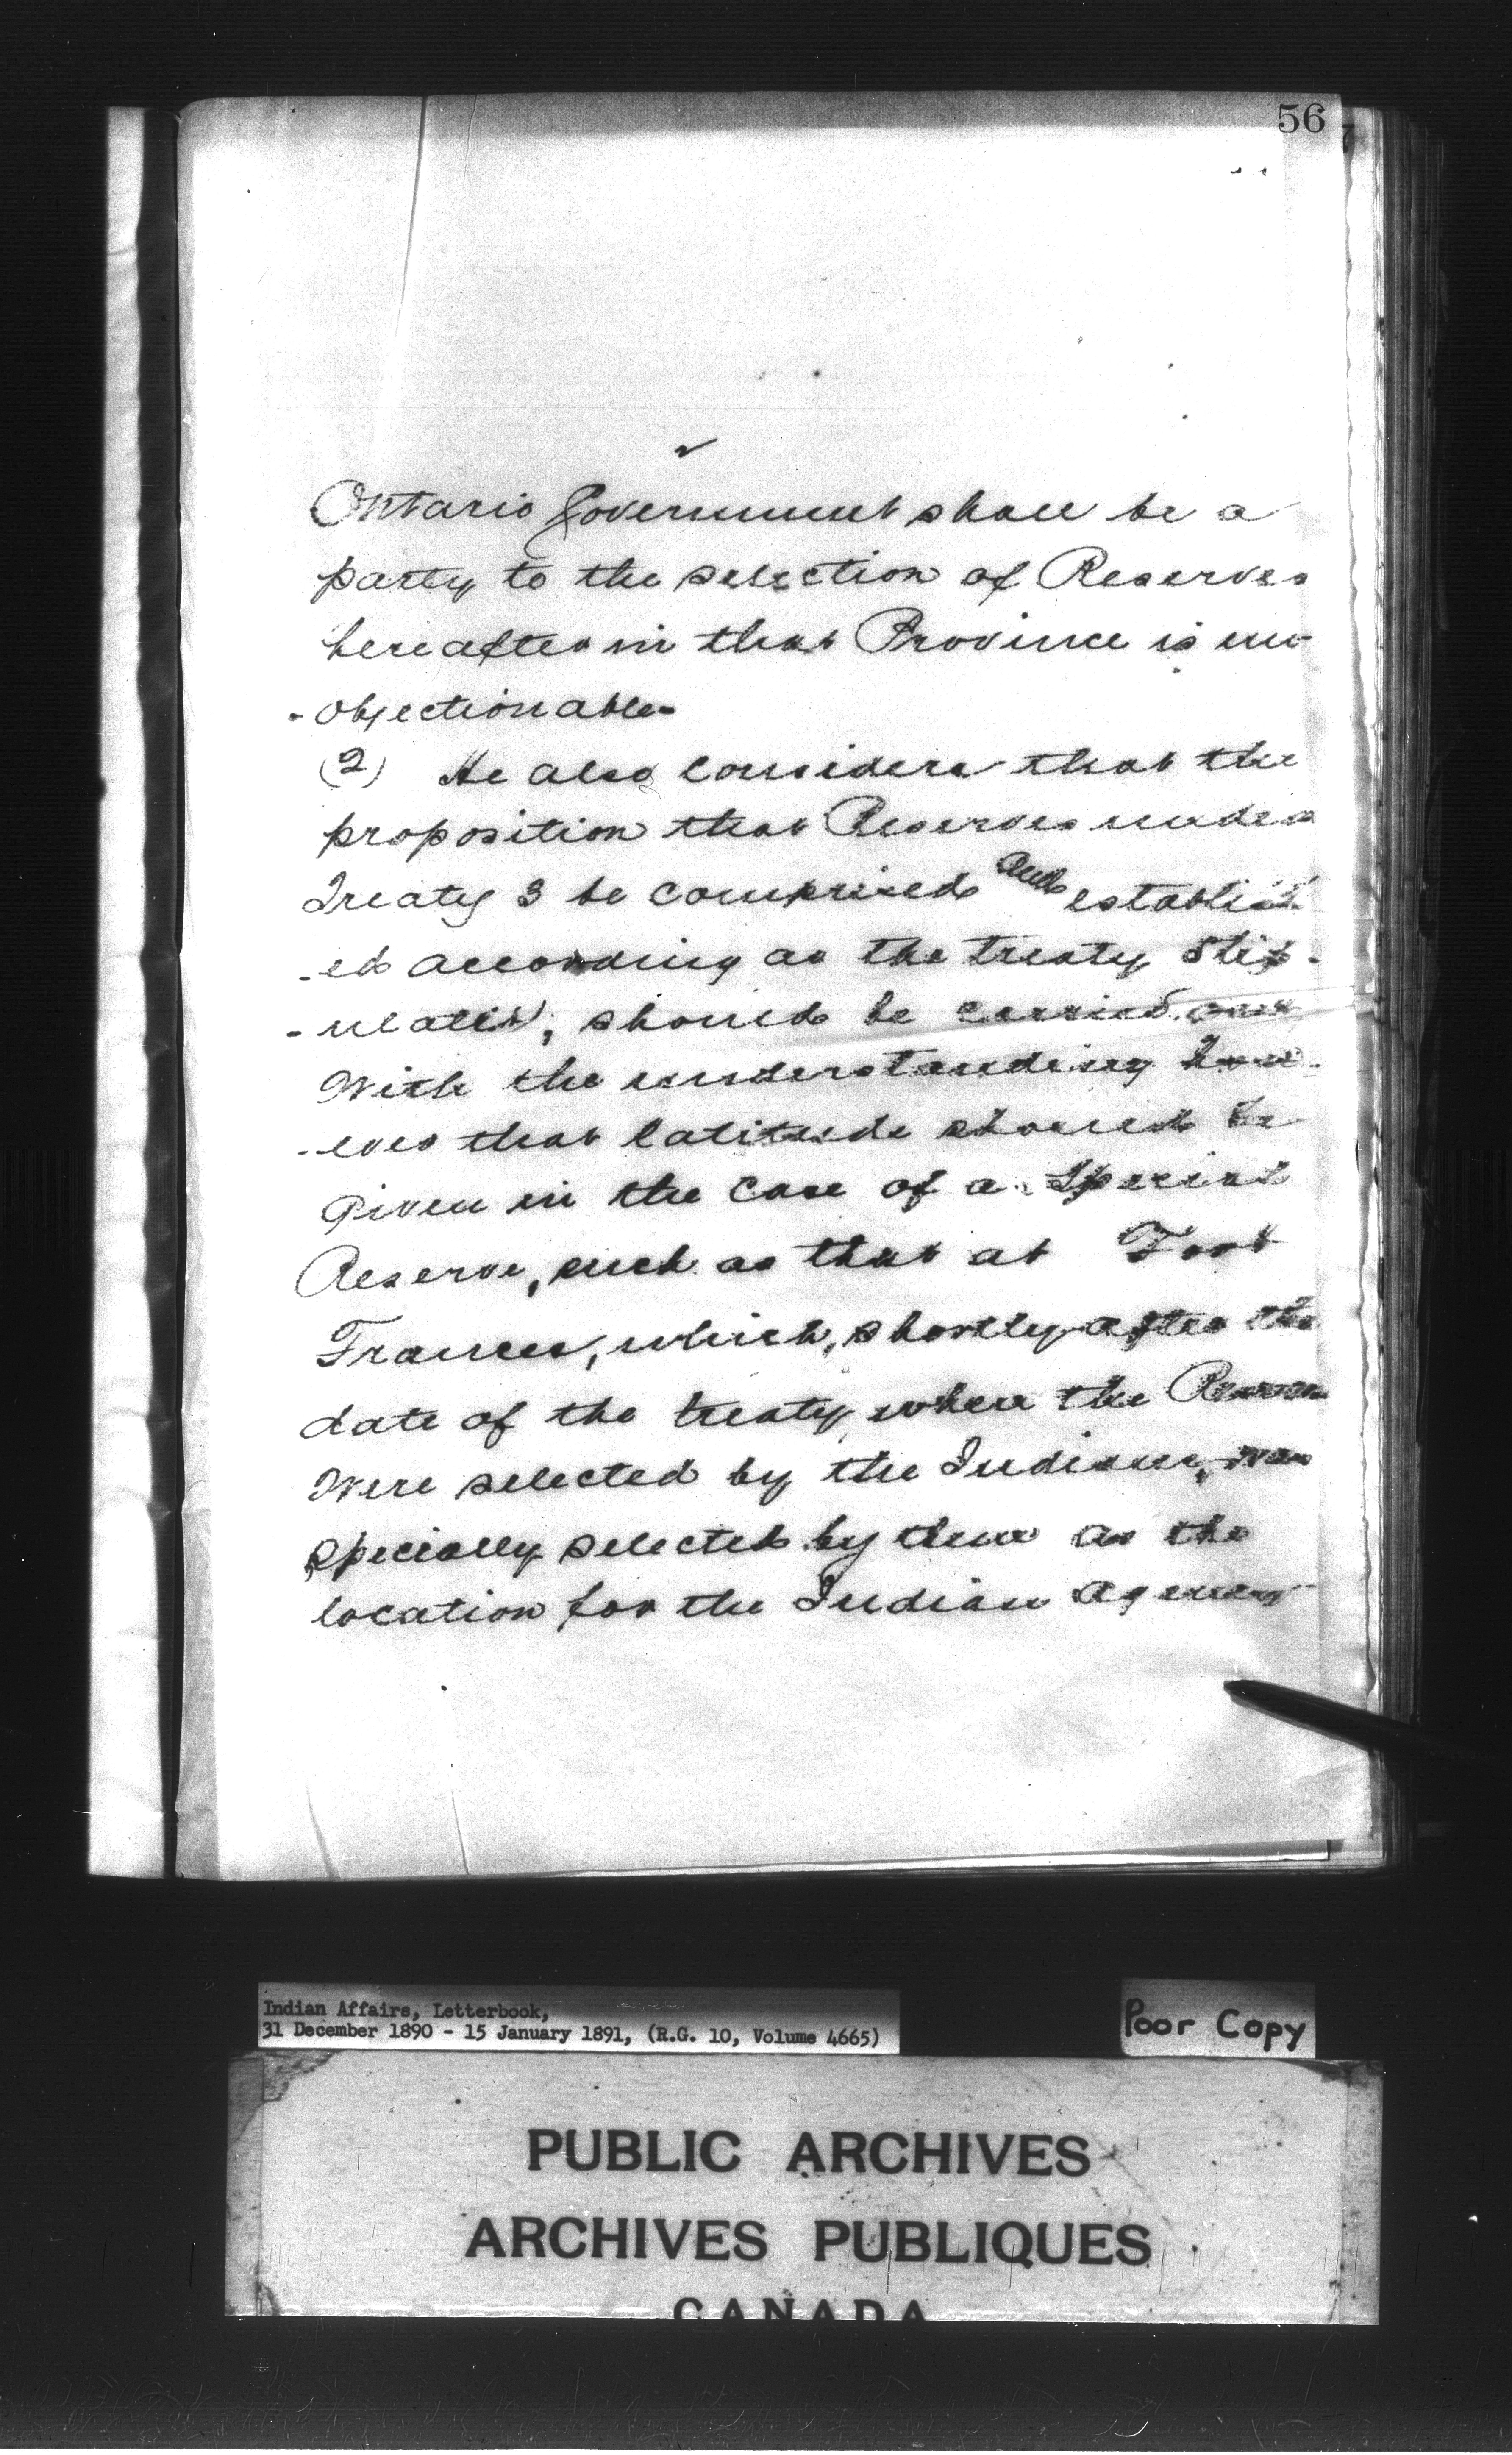 56
7
Ontario Government shall be a
party to the selection of Reserves
hereafter in that Province is un-
-objectionable-
(2) He also considers that the
proposition that Reserves under
Treaty 3 be comprised and establish
-ed according as the treaty stip-
-ulates, should be carried out
With the understanding how-
-ever that latitude should be
given in the case of a Special
Reserve, such as that at Fort
Frances, which, shortly after the
date of the treaty when the Reserves
Were selected by the Indians, was
specially selected by them as the
location for the Indian Agency
Indian Affairs, Letterbook,
31 December 1890 - 15 January 1891, (R.G. 10, Volume 4665)
Poor Copy
PUBLIC ARCHIVES
ARCHIVES PUBLIQUES
CANADA